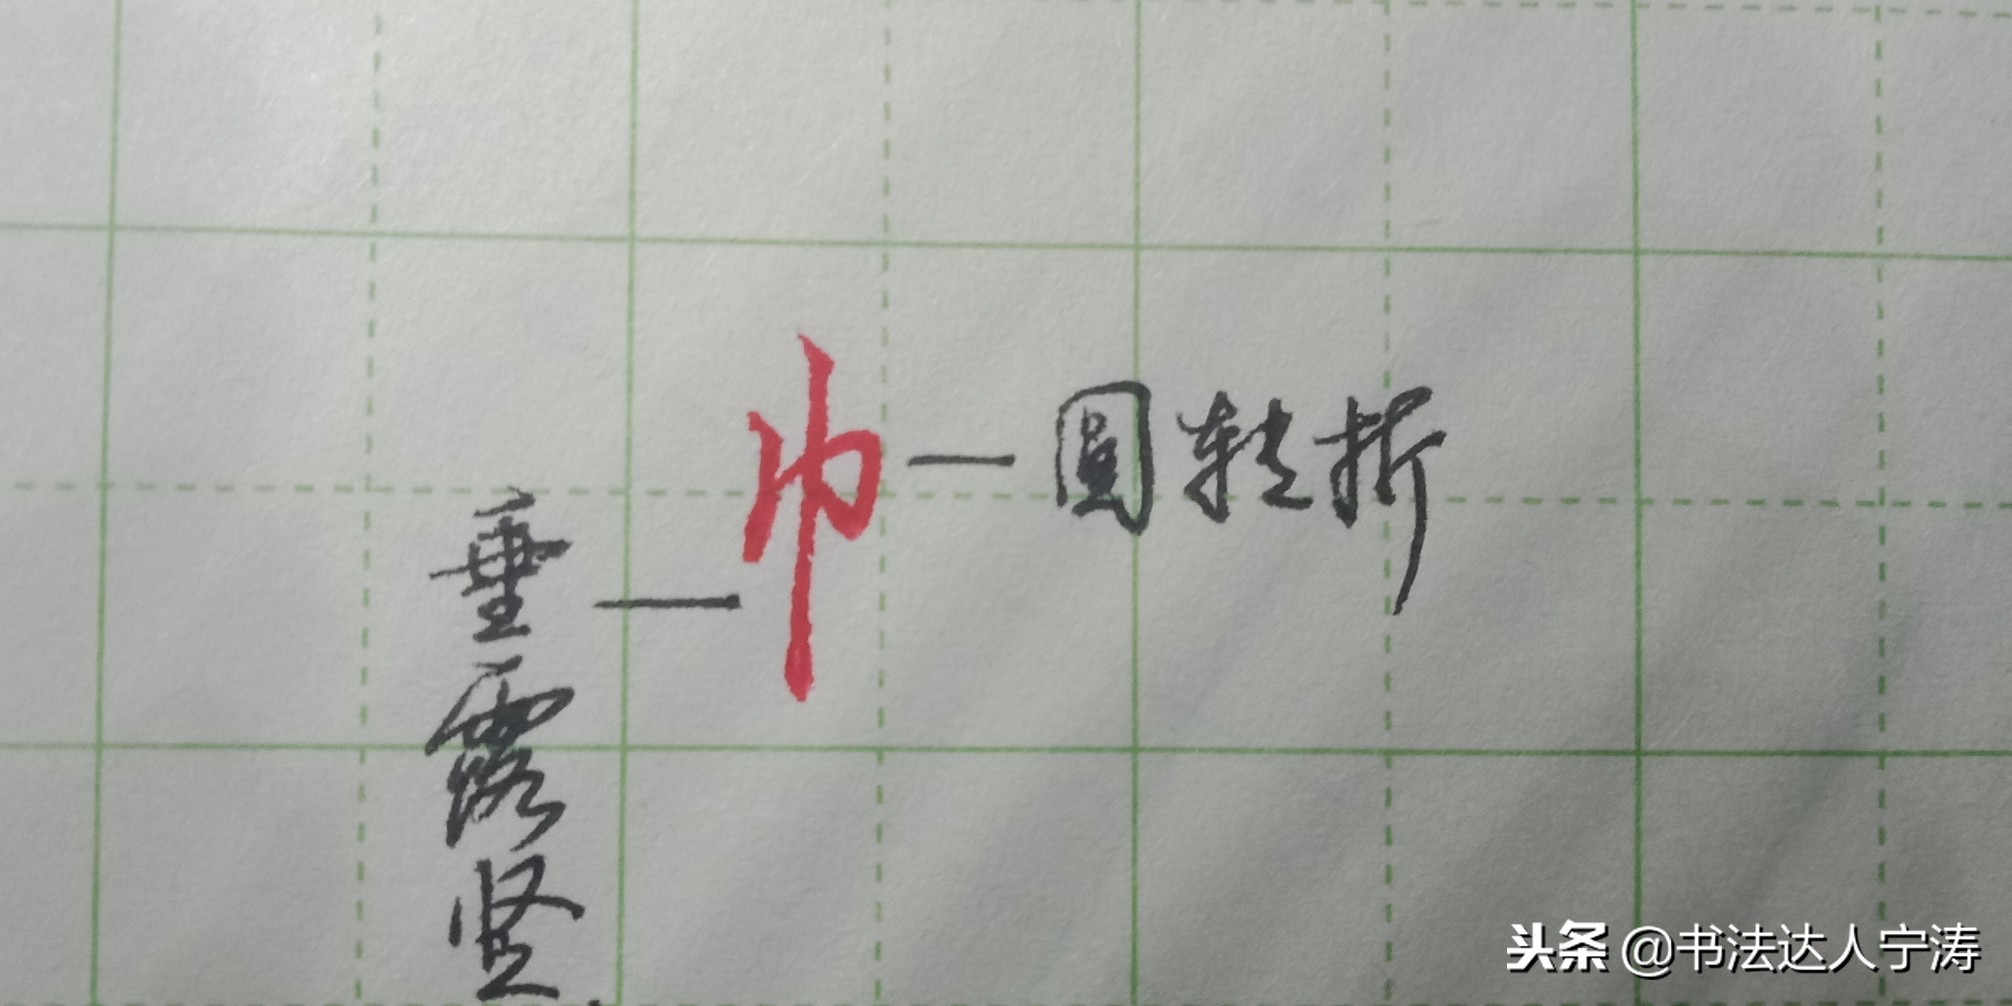 巾一圆转折
垂露竖
头条 @书法达人宁涛